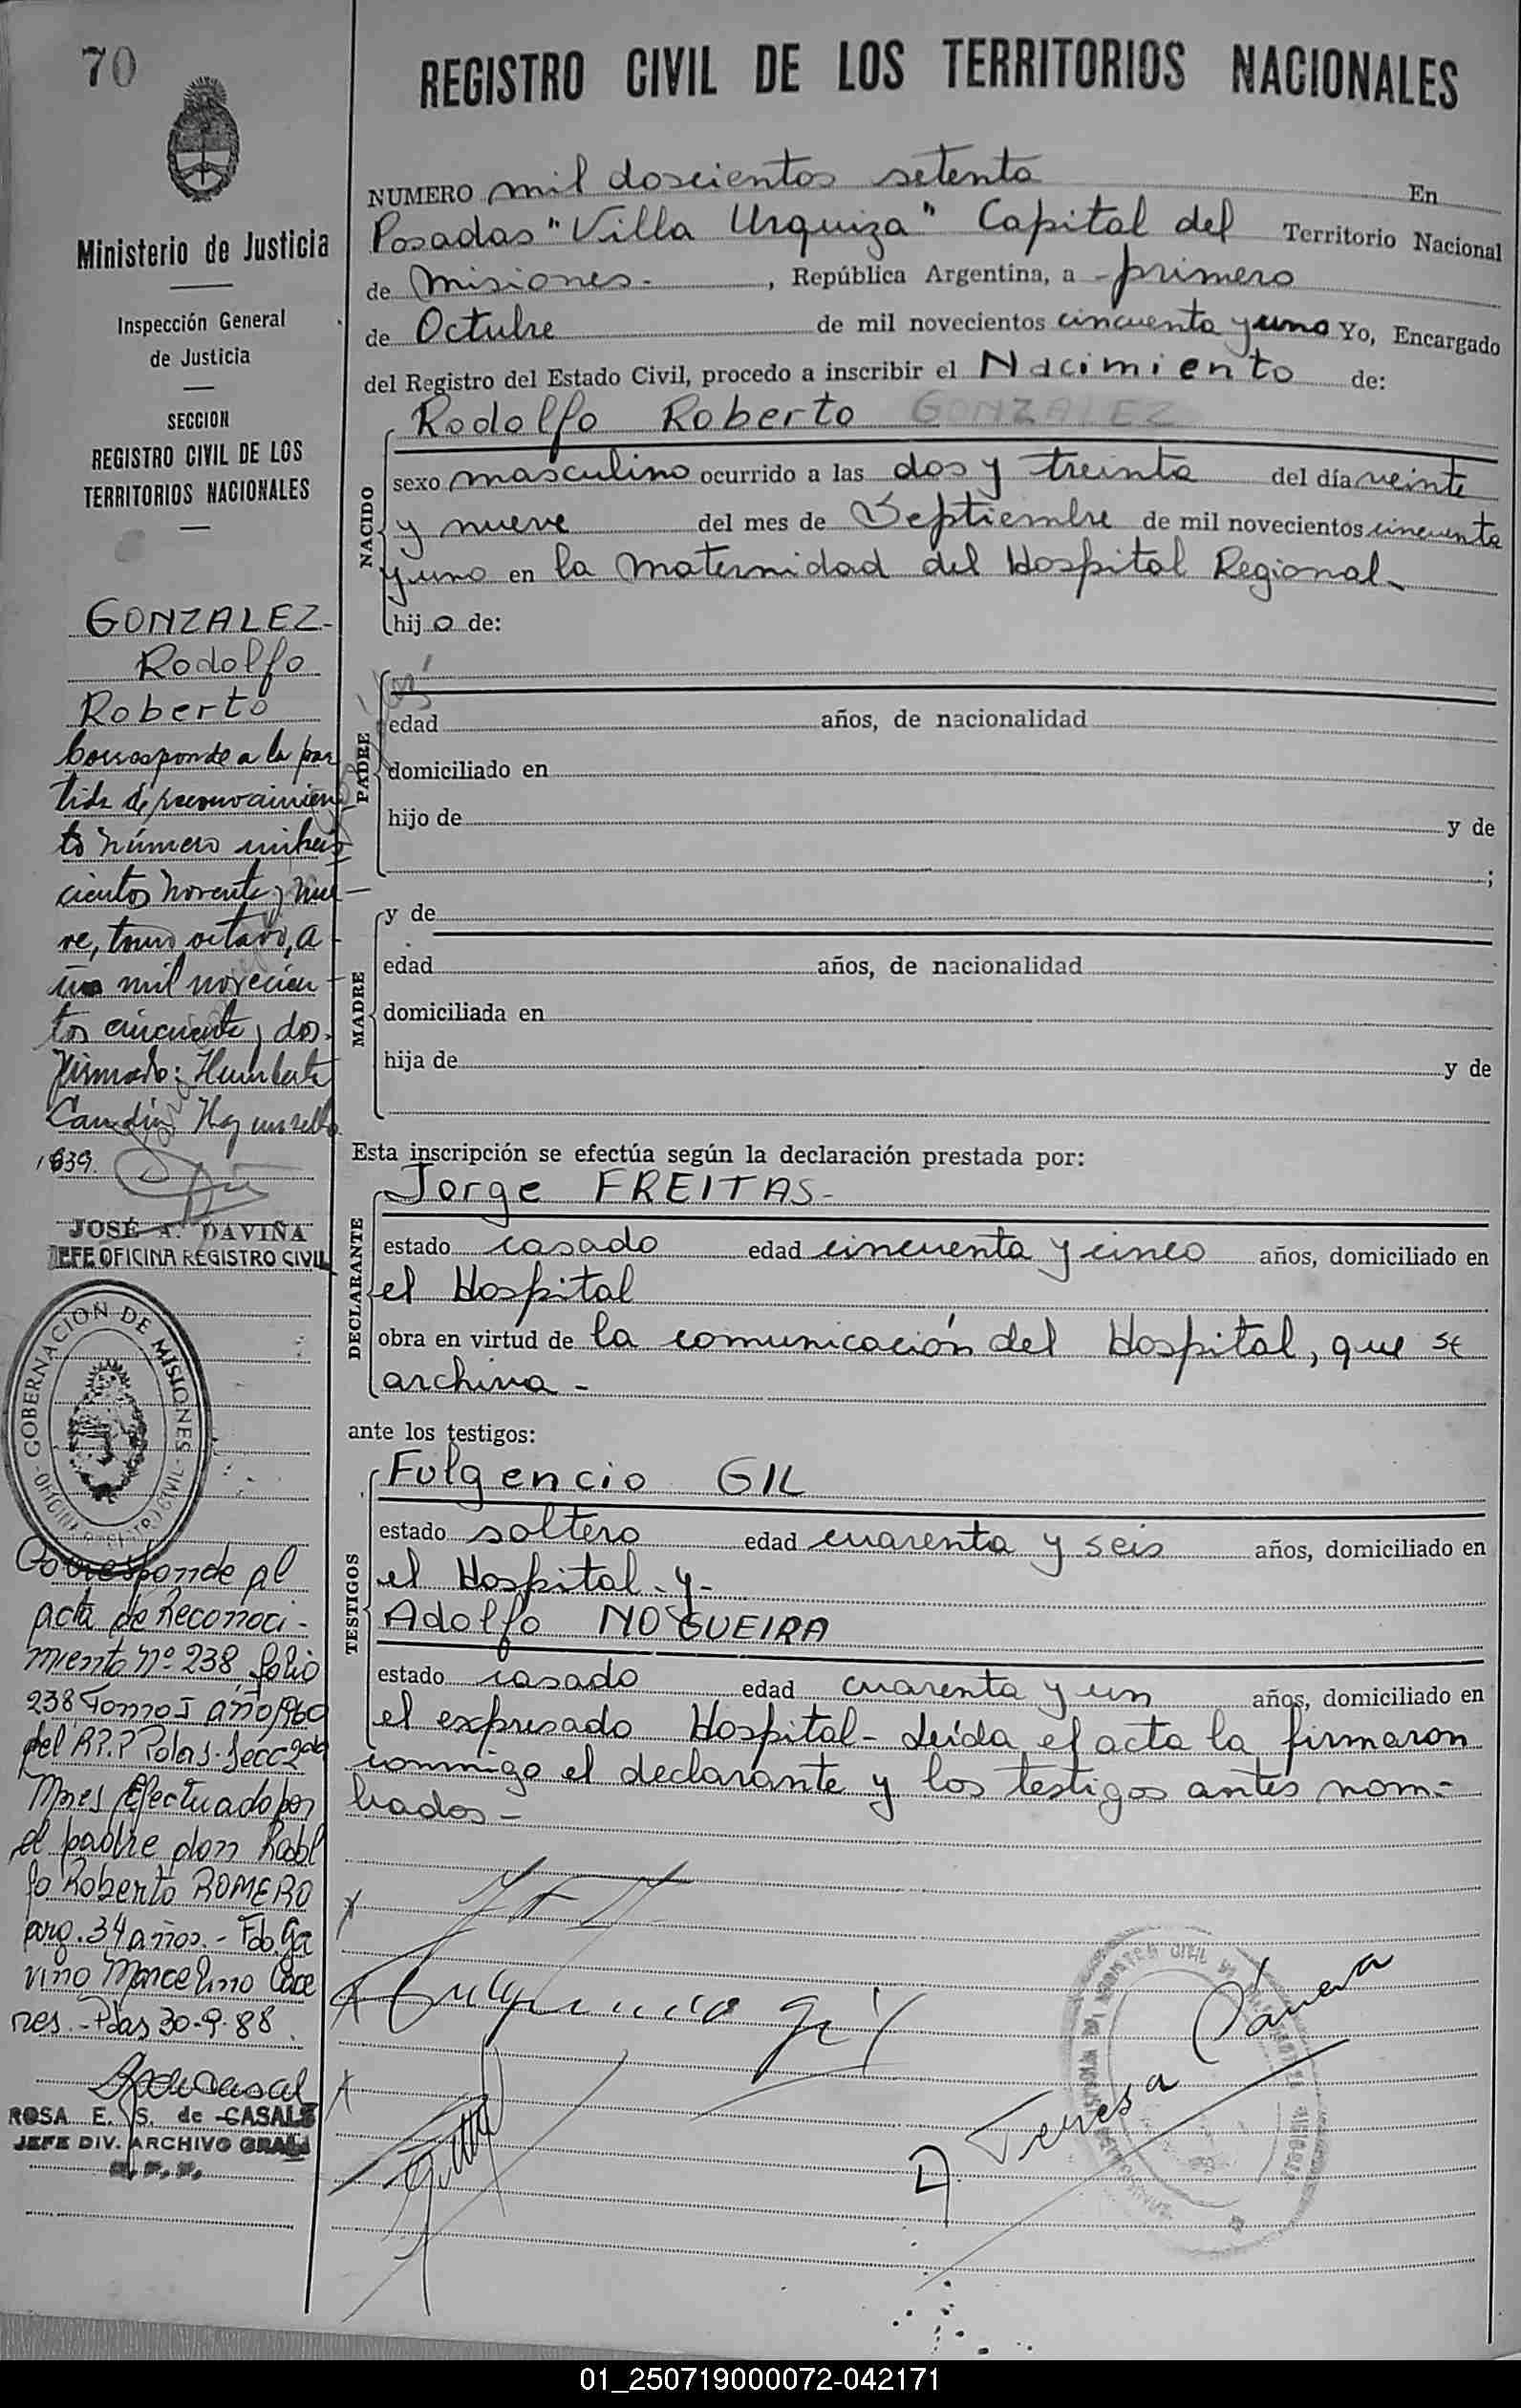 70
REGISTRO CIVIL DE LOS TERRITORIOS NACIONALES
Ministerio de Justicia
Inspección General
de Justicia
SECCION
REGISTRO CIVIL DE LOS
TERRITORIOS NACIONALES
GONZALEZ-
Rodolfo
Roberto
Corresponde a la par
tida de reconocimien
to número mil
cientos noventa y nue
ve, tomo octavo, a
ño mil novecien
tos cincuenta y dos.
Firmado: Humberto
Hay un sello
1839.
JOSÉ A. DAVIÑA
JEFE OFICINA REGISTRO CIVIL
GOBERNACION DE MISIONES
Corresponde al
acta de Reconoci-
miento nº 238 folio
238 Tomo I año 1960
del R.P.P Pdas. Secc-2da
Mnes Efectuado por
el padre don Rodol
fo Roberto ROMERO
arg. 34 años. - Fdo. Ga
vino Marcelino Cáce
res. - Pdas 30-9-88
ROSA E. S. de CASALS
JEFE DIV. ARCHIVO GRAL
NUMERO mil doscientos setenta En
Posadas "Villa Urquiza" Capital del Territorio Nacional
de Misiones- , República Argentina, a primero
de Octubre de mil novecientos cincuenta y uno Yo, Encargado
del Registro del Estado Civil, procedo a inscribir el Nacimiento de:
Rodolfo Roberto GONZALEZ
NACIDO
sexo masculino ocurrido a las dos y treinta del día veinte
y nueve del mes de Septiembre de mil novecientos cincuenta
y uno en la Maternidad del Hospital Regional-
hijo de:
PADRE
edad años, de nacionalidad
domiciliado en
hijo de y de
;
MADRE
y de
edad años, de nacionalidad
domiciliada en
hija de y de
Esta inscripción se efectúa según la declaración prestada por:
DECLARANTE
Jorge FREITAS-
estado casado edad cincuenta y cinco años, domiciliado en
el Hospital
obra en virtud de la comunicación del Hospital, que se
archiva-
ante los testigos:
TESTIGOS
Fulgencio GIL
estado soltero edad cuarenta y seis años, domiciliado en
el Hospital - y-
Adolfo NOGUEIRA
estado casado edad cuarenta y un años, domiciliado en
el expresado Hospital- Leída el acta la firmaron
conmigo el declarante y los testigos antes nom-
brados-
Fulgencio Gil
A. Teresa
01_250719000072-042171